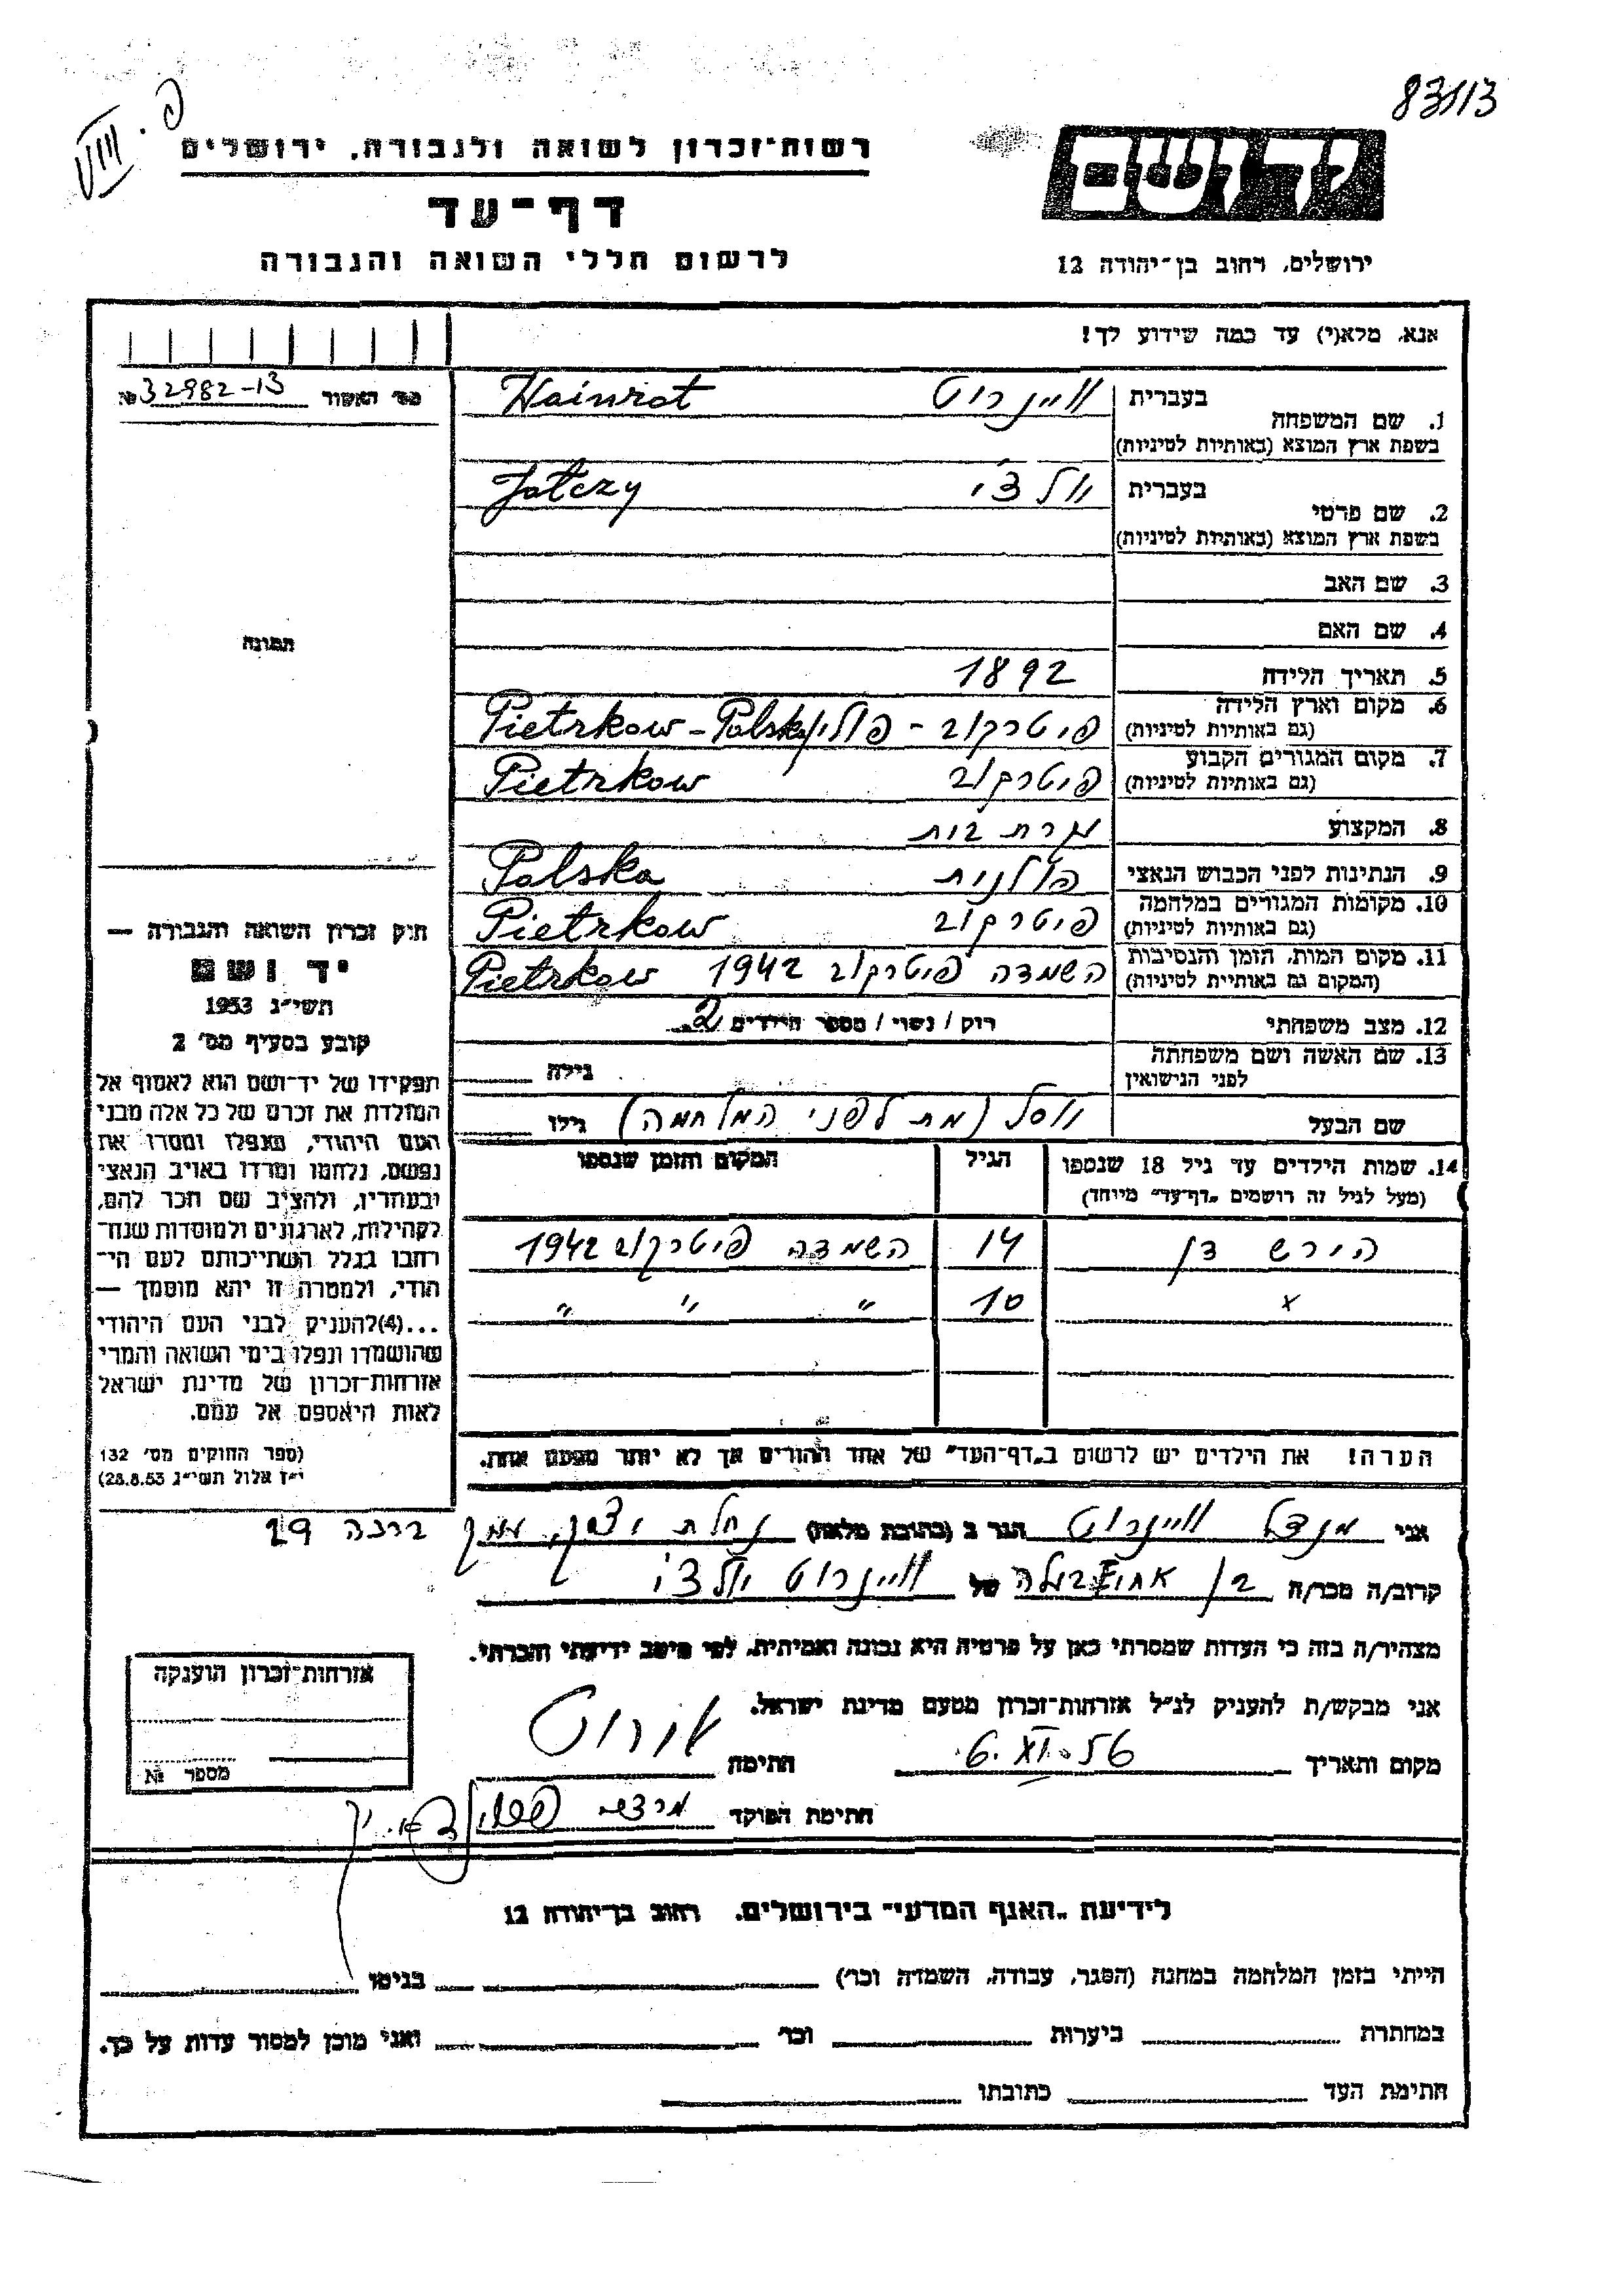 83113
VIII. פ
רשות־זכרון לשואה ולגבורה. ירושלים
דף־עד
לרשום חללי השואה והגבורה
יד ושם
ירושלים, רחוב בן־יהודה 12
אנא, מלא(י) עד כמה שידוע לך!
מס׳ האשור 32982-13 №
1. שם המשפחה בעברית ווינרוט Wainrot
בשפת ארץ המוצא (באותיות לטיניות)
2. שם פרטי בעברית
בשפת ארץ המוצא (באותיות לטיניות)
3. שם האב
4. שם האם
5. תאריך הלידה 1892
6. מקום וארץ הלידה פיטרקוב - פולין Pietrkow - Polska
(גם באותיות לטיניות)
7. מקום המגורים הקבוע פיטרקוב Pietrkow
(גם באותיות לטיניות)
8. המקצוע עקרת בית
9. הנתינות לפני הכבוש הנאצי פולנית Polska
10. מקומות המגורים במלחמה פיטרקוב Pietrkow
(גם באותיות לטיניות)
11. מקום המות, הזמן והנסיבות השמדה פיטרקוב 1942 Pietrkow
(המקום גם באותיית לטיניות)
12. מצב משפחתי רוק / נשוי / מספר הילדים 2
13. שם האשה ושם משפחתה גילה
לפני הנישואין
שם הבעל (מת לפני המלחמה) גילו
14. שמות הילדים עד גיל 18 שנספו הגיל המקום והזמן שנספו
(מעל לגיל זה רושמים „דף־עד״ מיוחד)
הירש 14 השמדה פיטרקוב 1942
x 10 " " "
הערה! את הילדים יש לרשום ב„דף־העד״ של אחד ההורים אך לא יותר מפעם אחת.
תמונה
חוק זכרון השואה והגבורה —
יד ושם
תשי״ג 1953
קובע בסעיף מס׳ 2
תפקידו של יד־ושם הוא לאסוף אל
המולדת את זכרם של כל אלה מבני
העם היהודי, שנפלו ומסרו את
נפשם, נלחמו ומרדו באויב הנאצי
ובעוזריו, ולהציב שם וזכר להם,
לקהילות, לארגונים ולמוסדות שנח־
רבו בגלל השתייכותם לעם הי־
הודי, ולמטרה זו יהא מוסמך —
...(4)להעניק לבני העם היהודי
שהושמדו ונפלו בימי השואה והמרי
אזרחות־זכרון של מדינת ישראל
לאות היאספם אל עמם.
(ספר החוקים מס׳ 132
י״ז אלול תשי״ג 28.8.53)
אני מנדל ווינרוט הגר ב (כתובת מלאה) נחלת יצחק, עמק ברכה 29
קרוב/ה מכר/ה בן של ווינרוט
מצהיר/ה בזה כי העדות שמסרתי כאן על פרטיה היא נכונה ואמיתית, לפי מיטב ידיעתי והכרתי.
אני מבקש/ת להעניק לנ״ל אזרחות־זכרון מטעם מדינת ישראל.
מקום ותאריך חתימה
חתימת הפוקד
אזרחות־זכרון הוענקה
מספר №
לידיעת „האגף המדעי״ בירושלים. רחוב בן־יהודה 12
הייתי בזמן המלחמה במחנה (הסגר, עבודה, השמדה וכו׳) בגיטו
במחתרת ביערות וכו׳ ואני מוכן למסור עדות על כך.
חתימת העד כתובתו